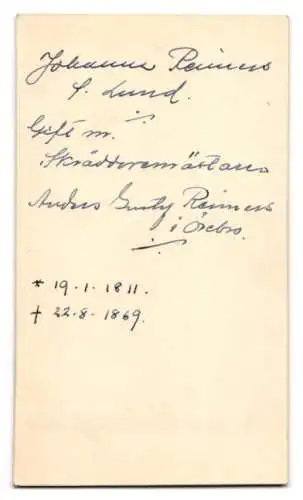 Johanna Reimers
f. Lund.
Gift m.
Skräddaremästaren
Anders Gust. Reimers
i Örebro.
* 19.1.1811.
† 22.8.1869.